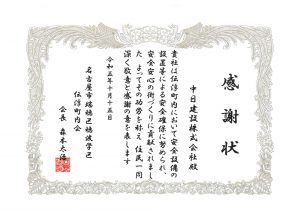 感謝状
中日建設株式会社殿
貴社は伝淳町内において安全設備の
設置等による安全確保に努められ、
安全安心の街づくりに貢献されまし
た よってその功労を称え 住民一同
深く敬意と感謝の意を表します
令和五年十月十五日
名古屋市瑞穂区穂波学区
伝淳町内会
会長